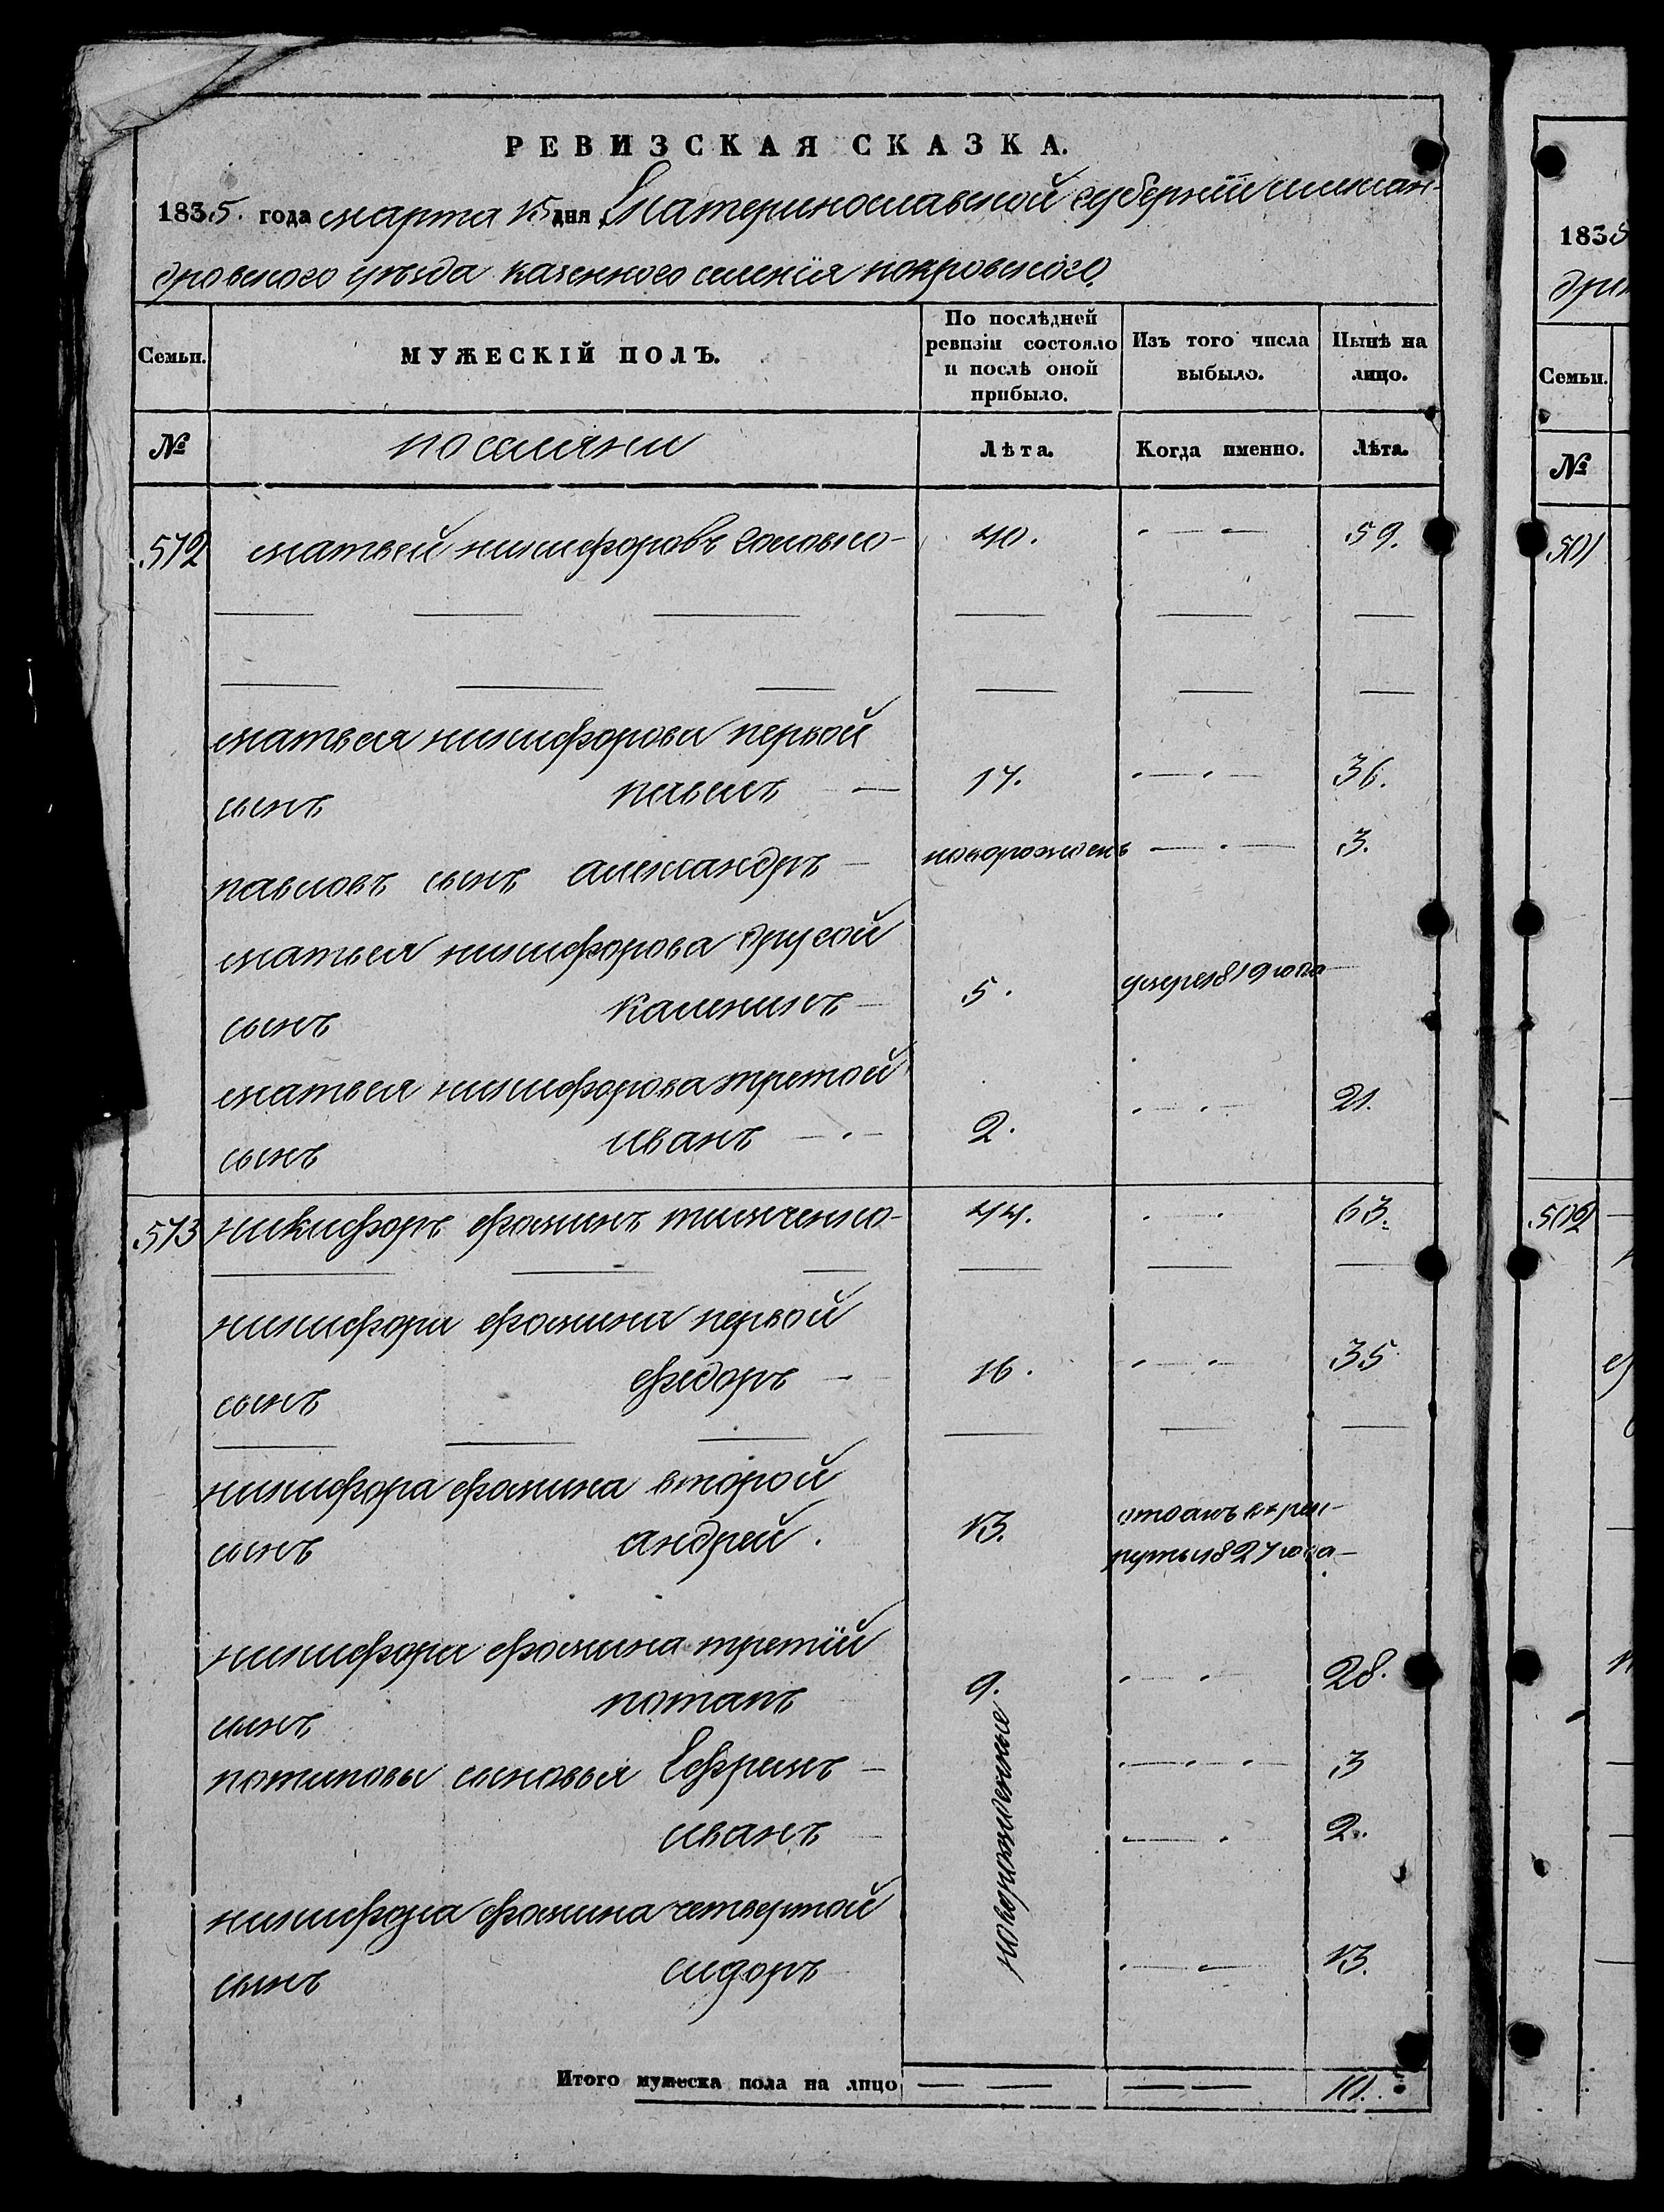 РЕВИЗСКАЯ СКАЗКА.
1835. года марта 15 дня Екатеринославской губернїи алексан-
дровского уезда казенного селенїя покровского
Семьи. МУЖЕСКІЙ ПОЛЪ. По послѣдней ревизіи состояло и послѣ оной прибыло. Изъ того числа выбыло. Нынѣ на лицо.
№ поселяни Лѣта. Когда именно. Лѣта.
572 матвей никифоровъ головко 40. 59.
матвея никифорова первой
сынъ павелъ 17. 36.
павловъ сынъ александръ новорожденъ 3.
матвея никифорова другой
сынъ калениκъ 5. умре 1819 года
матвея никифорова третой
сынъ иванъ 2. 21.
573 никифоръ фоминъ тимченко 44. 63.
никифора фомина первой
сынъ федоръ 16. 35
никифора фомина второй
сынъ андрей. 13. отданъ в рек-
руты 1827 года
никифора фомина третїй
сынъ потапъ 9. 28.
потаповы сыновья Ефримъ новорожденные 3
иванъ 2.
никифора фомина четвертой
сынъ сидоръ 13.
Итого мужеска пола на лицо 10.
1835
дри
Семьи.
№
501
502